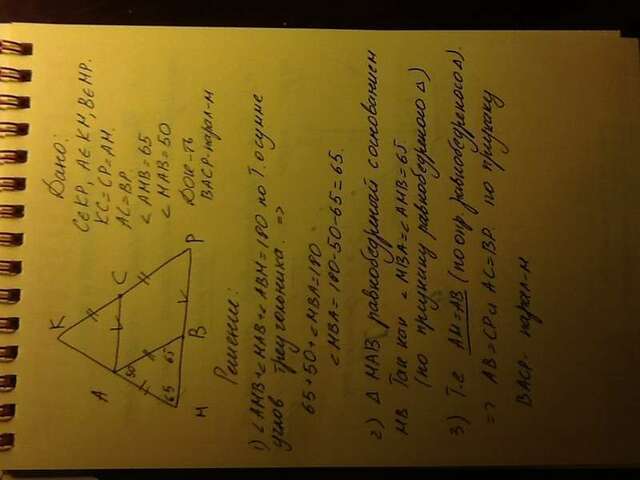 Дано:
C∈KP, A∈KM, B∈MP.
KC=CP=AM.
AC=BP.
∠AMB=65
∠MAB=50
Док-ть
BACP-парал-м
K
C
A
P
B
M
50
65
65
Решение:
1) ∠AMB+∠MAB+∠ABM=180 по Т.о сумме
углов треуголника. =>
65+50+∠MBA=180
∠MBA=180-50-65=65.
2) Δ MAB равнобедрный с основанием
MB Так как ∠MBA=∠AMB=65
(по признаку равнобедрного Δ)
3) Т.е AM=AB (по опр равнобедреного Δ).
=> AB=CP и AC=BP. по признаку
BACP- парал-м